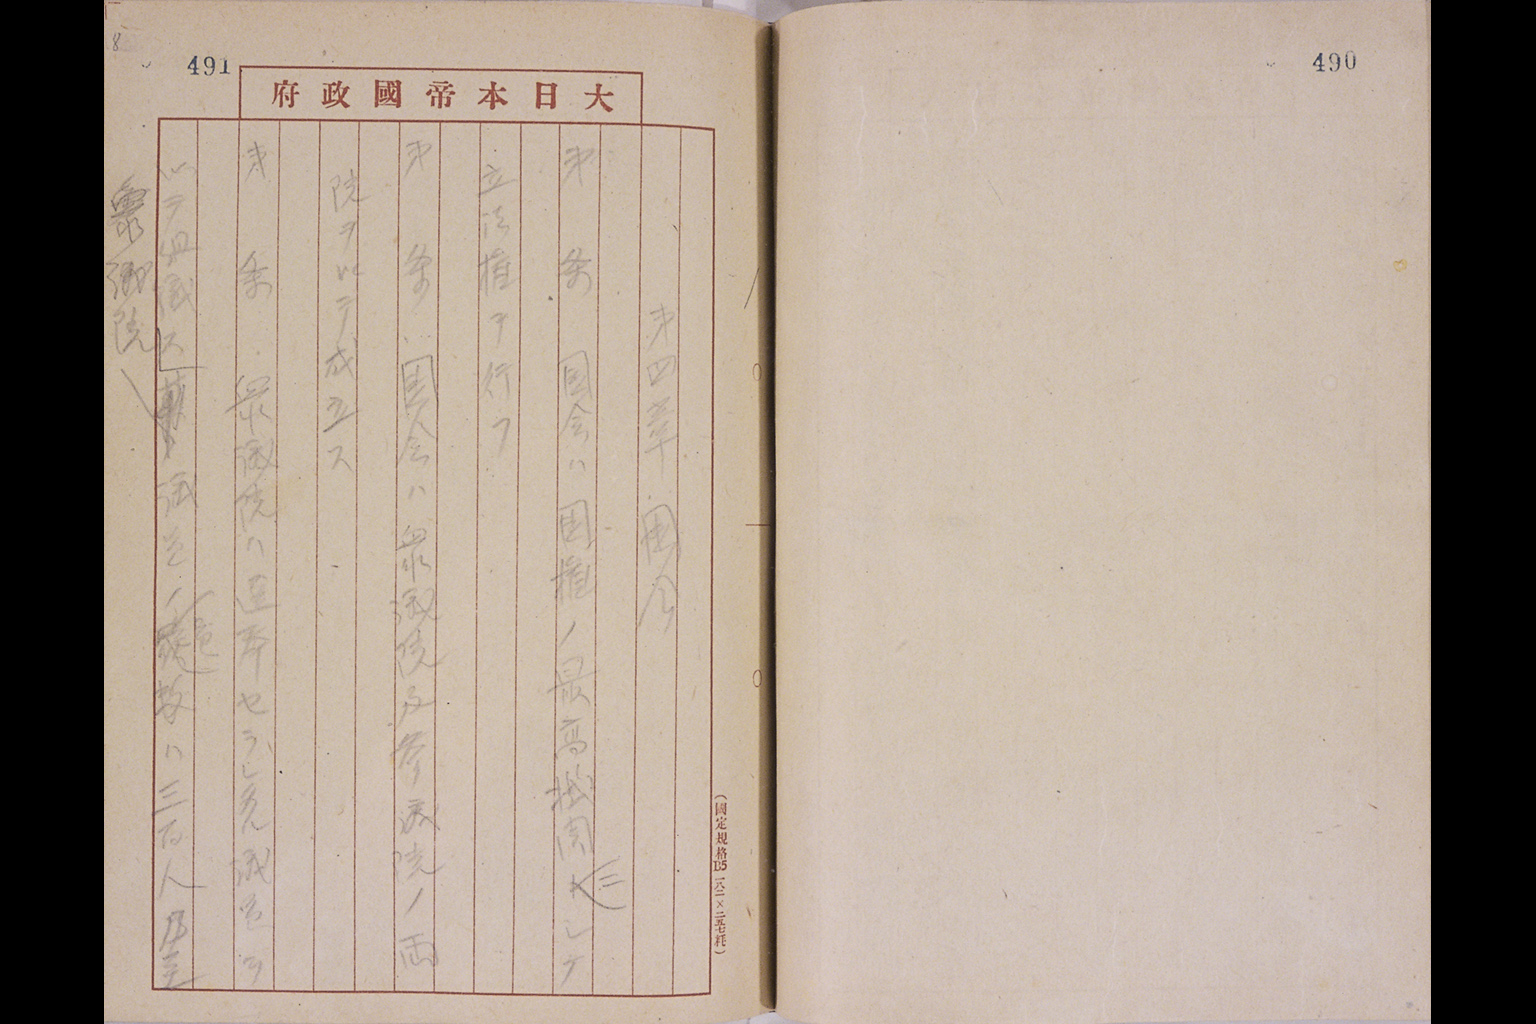 490
491
8
大日本帝國政府
第四章 国会
第 条 国会ハ国権ノ最高機関ニシテ
立法権ヲ行フ
第 条 国会ハ衆議院及参議院ノ両
院ヲ以テ成立ス
第 条 衆議院ハ選挙セラレタル議員ヲ
以テ組織ス 議員ノ定数ハ三百人乃至
衆議院
(國定規格B5 一八二×二五七粍)